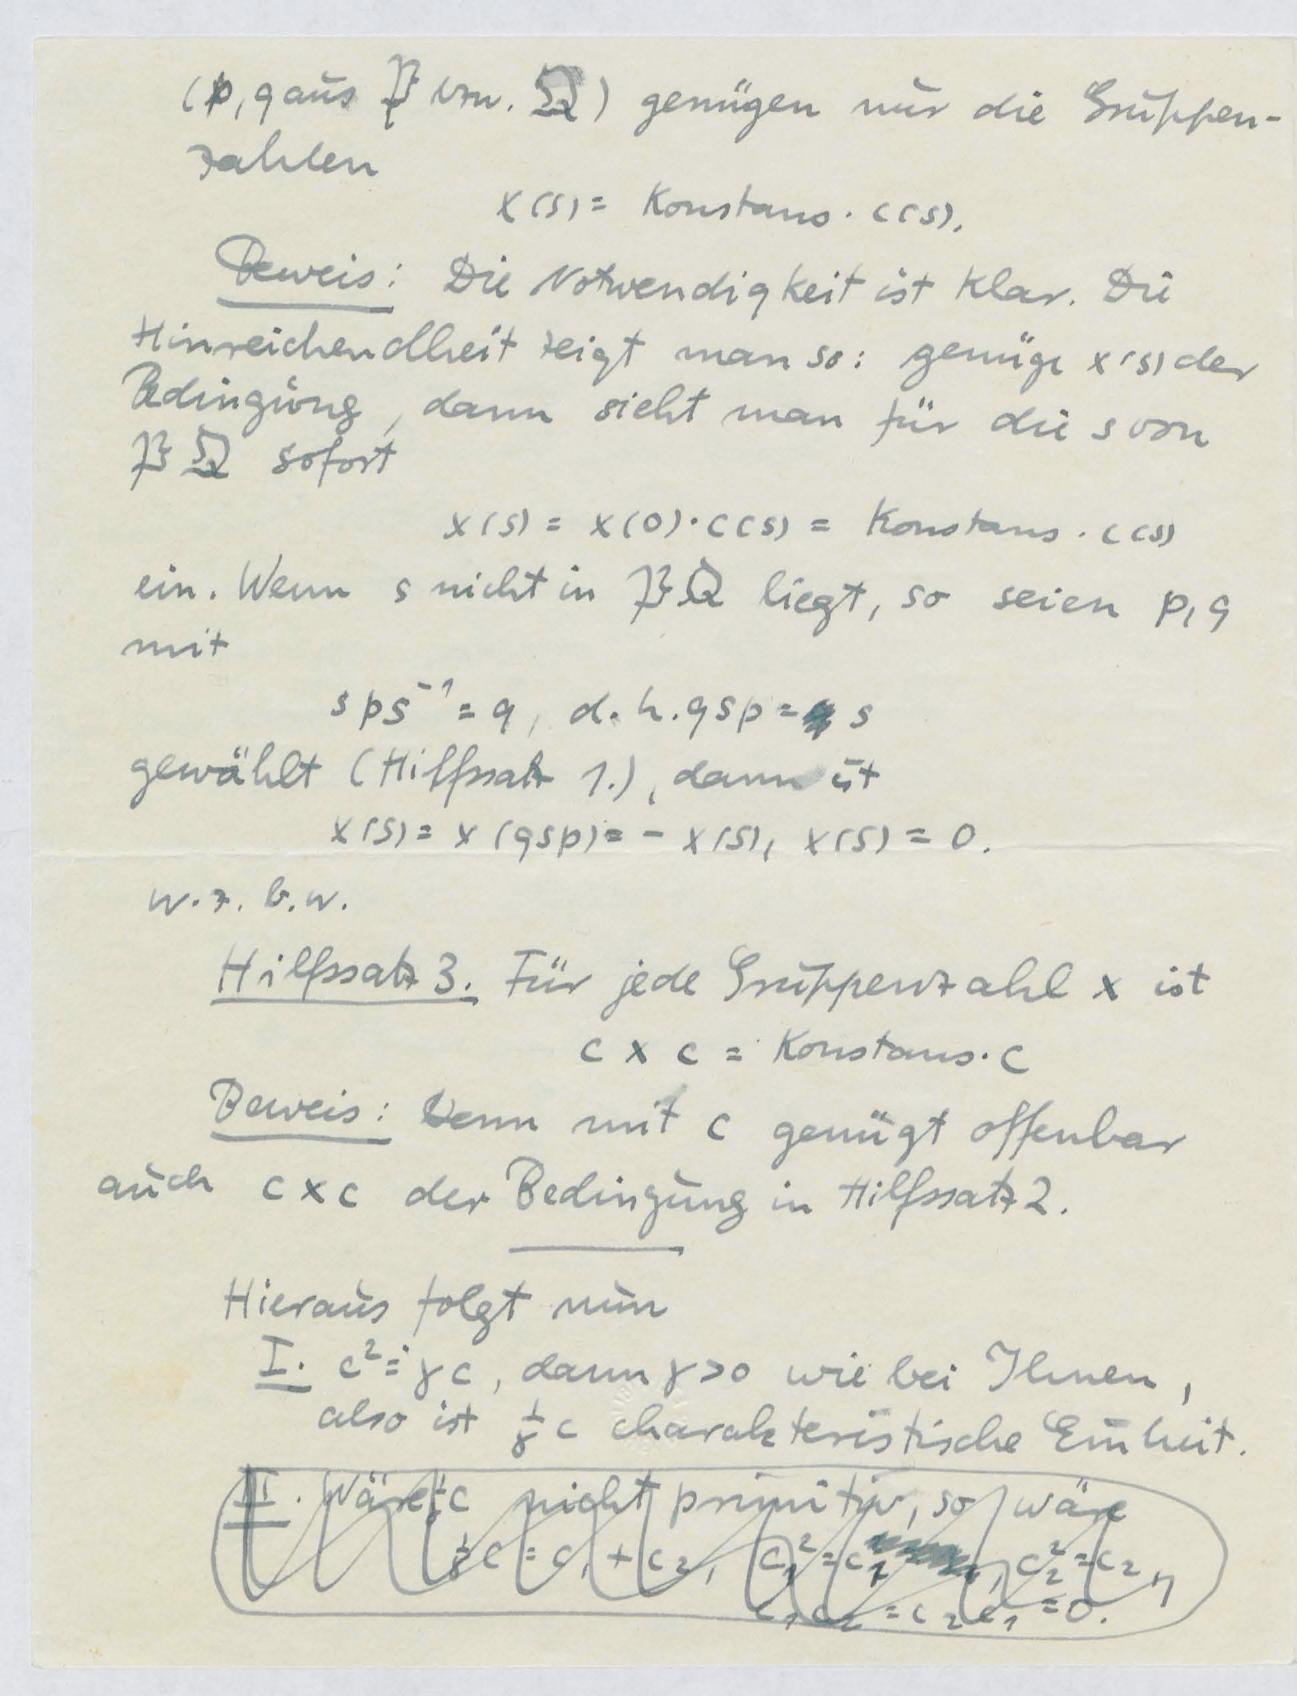 (p, q aus 𝔓 bzw. 𝔔) genügen nur die Gruppen-
zahlen
x(s) = Konstans · c(s).
Beweis: Die Notwendigkeit ist klar. Die
Hinreichendheit zeigt man so: genüge x(s) der
Bedingung, dann sieht man für die s von
𝔓𝔔 sofort
x(s) = x(0) · c(s) = Konstans · c(s)
ein. Wenn s nicht in 𝔓𝔔 liegt, so seien p, q
mit
s p s⁻¹ = q, d. h. q s p = s
gewählt (Hilfssatz 1.), dann ist
x(s) = x(qsp) = - x(s), x(s) = 0.
w. z. b. w.
Hilfssatz 3. Für jede Gruppenzahl x ist
c x c = Konstans · c
Beweis: Denn mit c genügt offenbar
auch c x c der Bedingung in Hilfssatz 2.
Hieraus folgt nun
I. c² = γ c, dann γ > 0 wie bei Ihnen,
also ist 1/γ c charakteristische Einheit.
II. Wäre 1/γ c nicht primitiv, so wäre
1/γ c = c₁ + c₂, c₁² = c₁, c₂² = c₂,
c₁c₂ = c₂c₁ = 0.